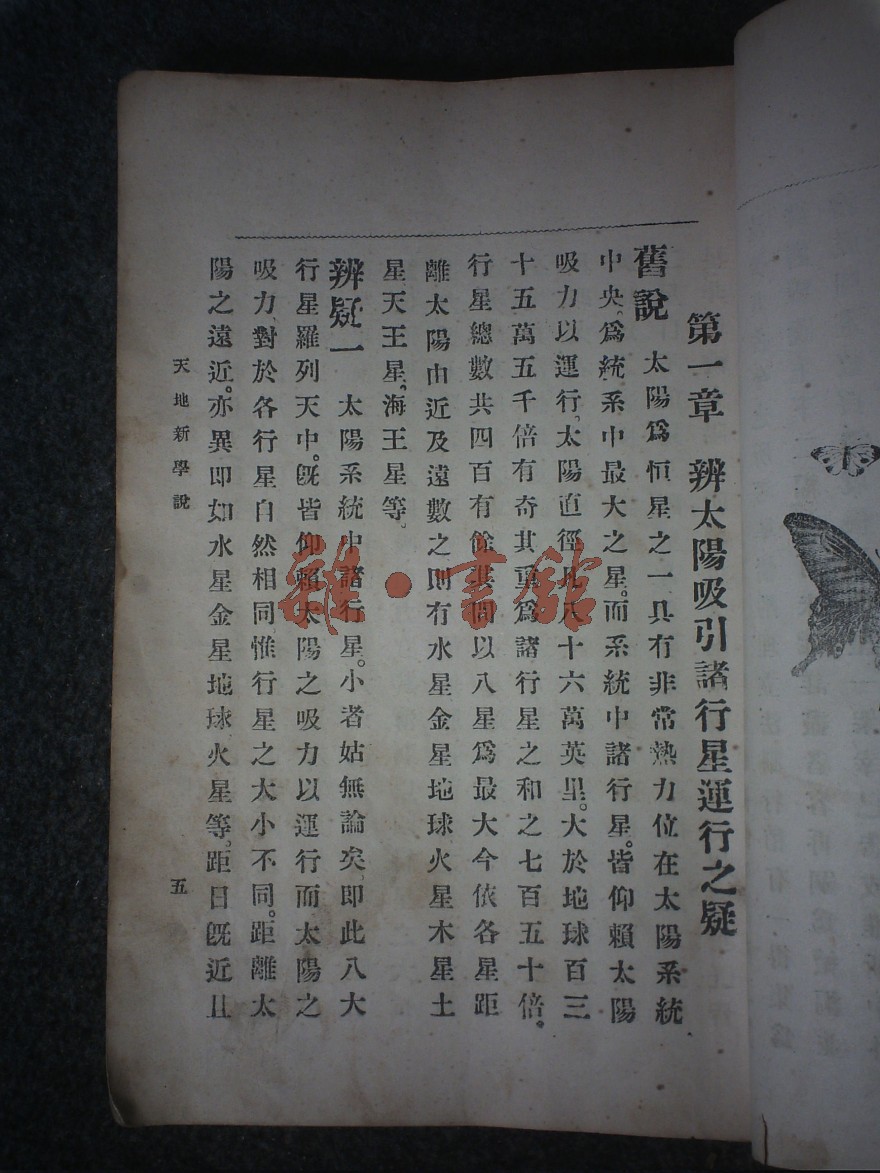 第一章　辨太陽吸引諸行星運行之疑
舊說　太陽爲恒星之一具有非常熱力位在太陽系統
中央、爲統系中最大之星。而系統中諸行星。皆仰賴太陽
吸力以運行。太陽直徑凡八十六萬英里。大於地球百三
十五萬五千倍有奇其重爲諸行星之和之七百五十倍。
行星總數共四百有餘其間以八星爲最大今依各星距
離太陽由近及遠數之則有水星金星地球火星木星土
星天王星。海王星等。
辨疑一　太陽系統中諸行星。小者姑無論矣、即此八大
行星羅列天中。旣皆仰賴太陽之吸力以運行而太陽之
吸力、對於各行星自然相同惟行星之大小不同。距離太
陽之遠近。亦異即如水星金星地球火星等。距日旣近且
天地新學說
五
雜·書館